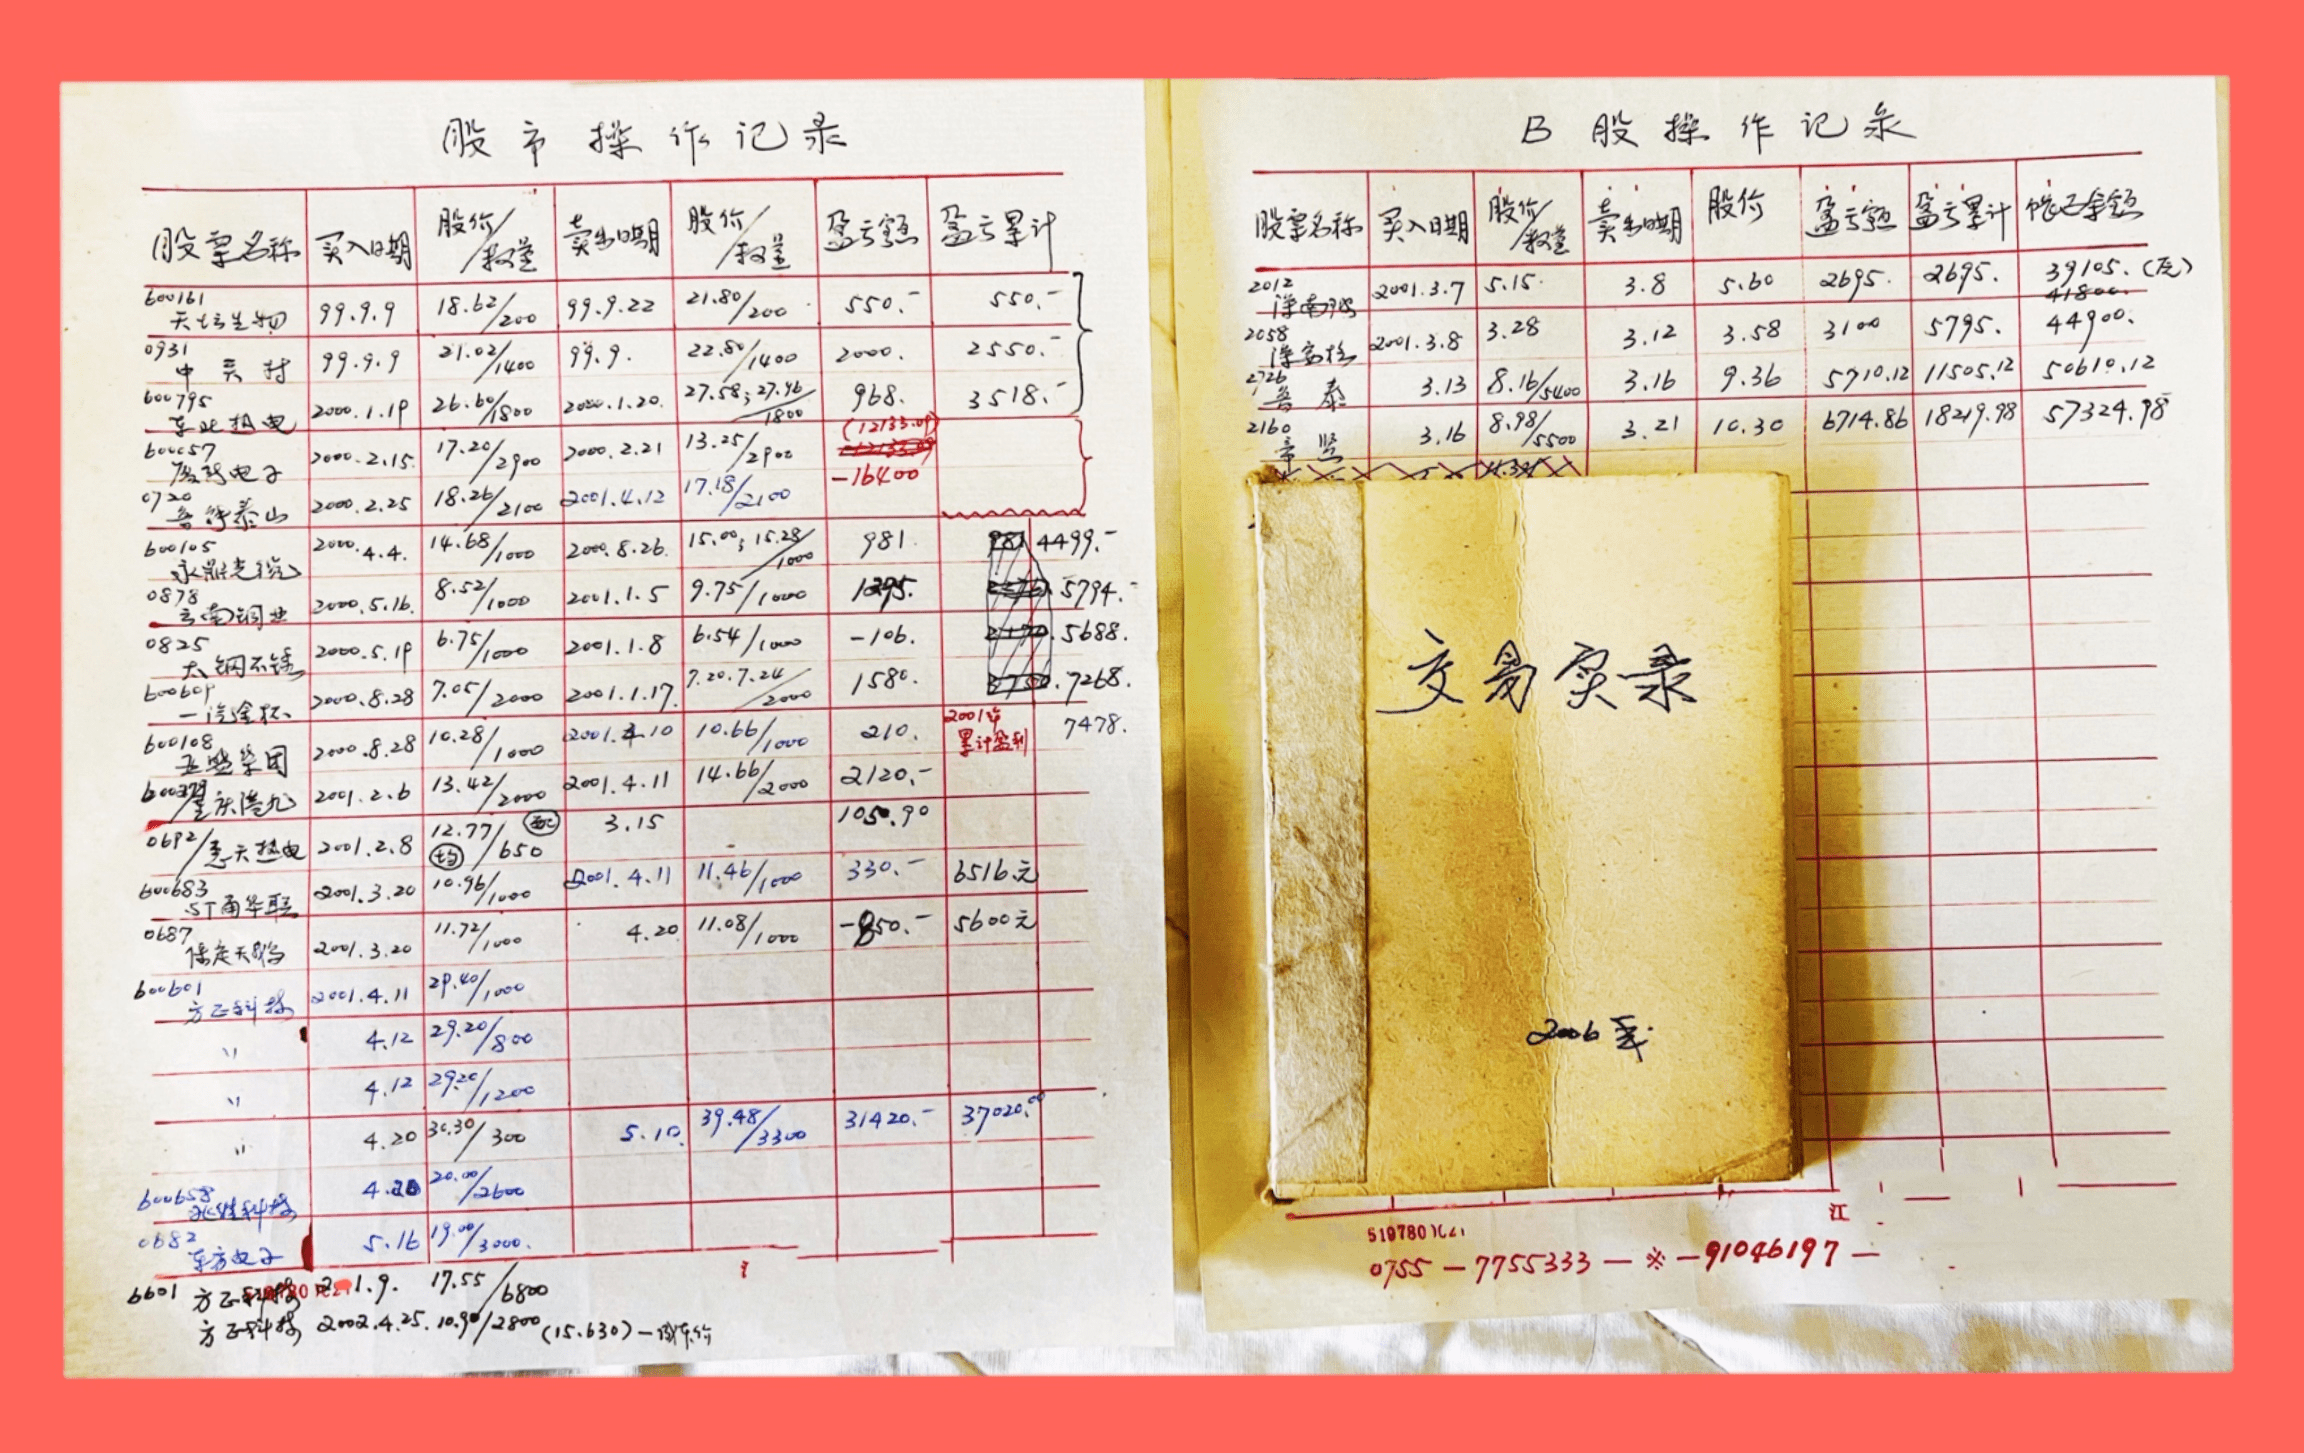 股市操作记录
股票名称 买入日期 股价/数量 卖出日期 股价/数量 盈亏额 盈亏累计
600161 天坛生物 99.9.9 18.62/200 99.9.22 21.80/200 550.- 550.-
0931 中关村 99.9.9 21.02/1400 99.9. 22.80/1400 2000. 2550.-
600795 东北热电 2000.1.19 26.60/1800 2000.1.20. 27.58;27.46/1800 968. 3518.-
600057 厦新电子 2000.2.15 17.20/2900 2000.2.21 13.25/2900 (12133.09) -16400
0720 鲁能泰山 2000.2.25 18.26/2100 2001.4.12 17.18/2100
600105 永鼎光缆 2000.4.4. 14.68/1000 2000.8.26. 15.00;15.28/1000 981 981 4499.-
0878 云南铜业 2000.5.16. 8.52/1000 2001.1.5 9.75/1000 1295. 5794.-
0825 太钢不锈 2000.5.19 6.75/1000 2001.1.8 6.54/1000 -106. 5688.
600609 一汽金杯 2000.8.28 7.05/2000 2001.1.17. 7.20.7.24/2000 1580. 7268.
600108 亚盛集团 2000.8.28 10.28/1000 2001.4.10 10.66/1000 210. 2001年累计盈利 7478.
重庆港九 2001.2.6 13.42/2000 2001.4.11 14.66/2000 2120.-
0692/惠天热电 2001.2.8 12.77/650 配 均 3.15 1050.90
600683 ST甬华联 2001.3.20 10.96/1000 2001.4.11 11.46/1000 330.- 6516元
0687 保定天鹅 2001.3.20 11.72/1000 4.20 11.08/1000 -850.- 5600元
600601 方正科技 2001.4.11 29.40/1000
〃 4.12 29.20/800
〃 4.12 29.20/1200
〃 4.20 30.30/300 5.10. 39.48/3300 31420.- 37020.00
600658 兆维科技 4.20 20.00/2600
0682 东方电子 5.16 19.00/3000.
6601 方正科技 1.9. 17.55/6800
方正科技 2002.4.25. 10.90/2800 (15.630)
B股操作记录
股票名称 买入日期 股价/数量 卖出日期 股价 盈亏额 盈亏累计 帐己余额
2012 深南玻 2001.3.7 5.15. 3.8 5.60 2695. 2695. 39105.(元)
41800.
2058 深赛格 2001.3.8 3.28 3.12 3.58 3100 5795. 44900.
2726 鲁泰 3.13 8.16/5400 3.16 9.36 5710.12 11505.12 50610.12
2160 帝贤 3.16 8.98/5500 3.21 10.30 6714.86 18219.98 57324.98
交易实录
2006年
江
0755-7755333-※-91046197-